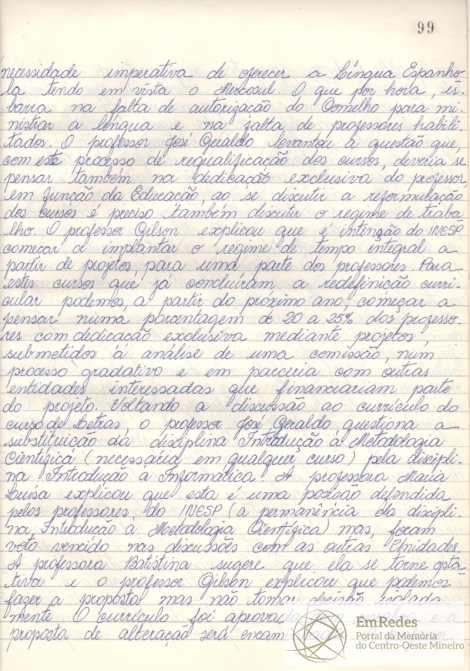 99
necessidade imperativa de oferecer a Língua Espanho-
la tendo em vista o Mercosul. O que por hora, es-
barra na falta de autorização do Conselho para mi-
nistrar a língua e na falta de professores habili-
tados. O professor José Geraldo levantou a questão que,
com este processo de requalificação dos cursos, deveria se
pensar também na dedicação exclusiva do professor
em função da Educação, ao se discutir a reformulação
dos cursos é preciso também discutir o regime de traba-
lho. O professor Gilson explicou que é intenção do INESP
começar a implantar o regime de tempo integral a
partir de projetos, para uma parte dos professores. Para
estes cursos que já concluíram, a redefinição curri-
cular podemos, a partir do próximo ano, começar a
pensar numa porcentagem de 20 a 25% dos professo-
res com dedicação exclusiva mediante projetos,
submetidos à análise de uma comissão, num
processo gradativo e em parceria com outras
entidades interessadas que financiariam parte
do projeto. Voltando a discussão ao currículo do
curso de Letras, o professor José Geraldo questiona a
substituição da disciplina Introdução à Metodologia
Científica (necessária em qualquer curso) pela discipli-
na Introdução à Informática. A professora Maria
Luisa explicou que esta é uma posição defendida
pelos professores do INESP (a permanência da discipli-
na, Introdução à Metodologia Científica) mas, foram
voto vencido nas discussões com as outras Unidades.
A professora Batistina sugere que ela se torne opta-
tiva e o professor Gilson explicou que podemos
fazer a proposta mas não tomar decisão isolada-
mente. O currículo foi aprovado
proposta de alteração será
EmRedes
Portal da Memória
do Centro-Oeste Mineiro